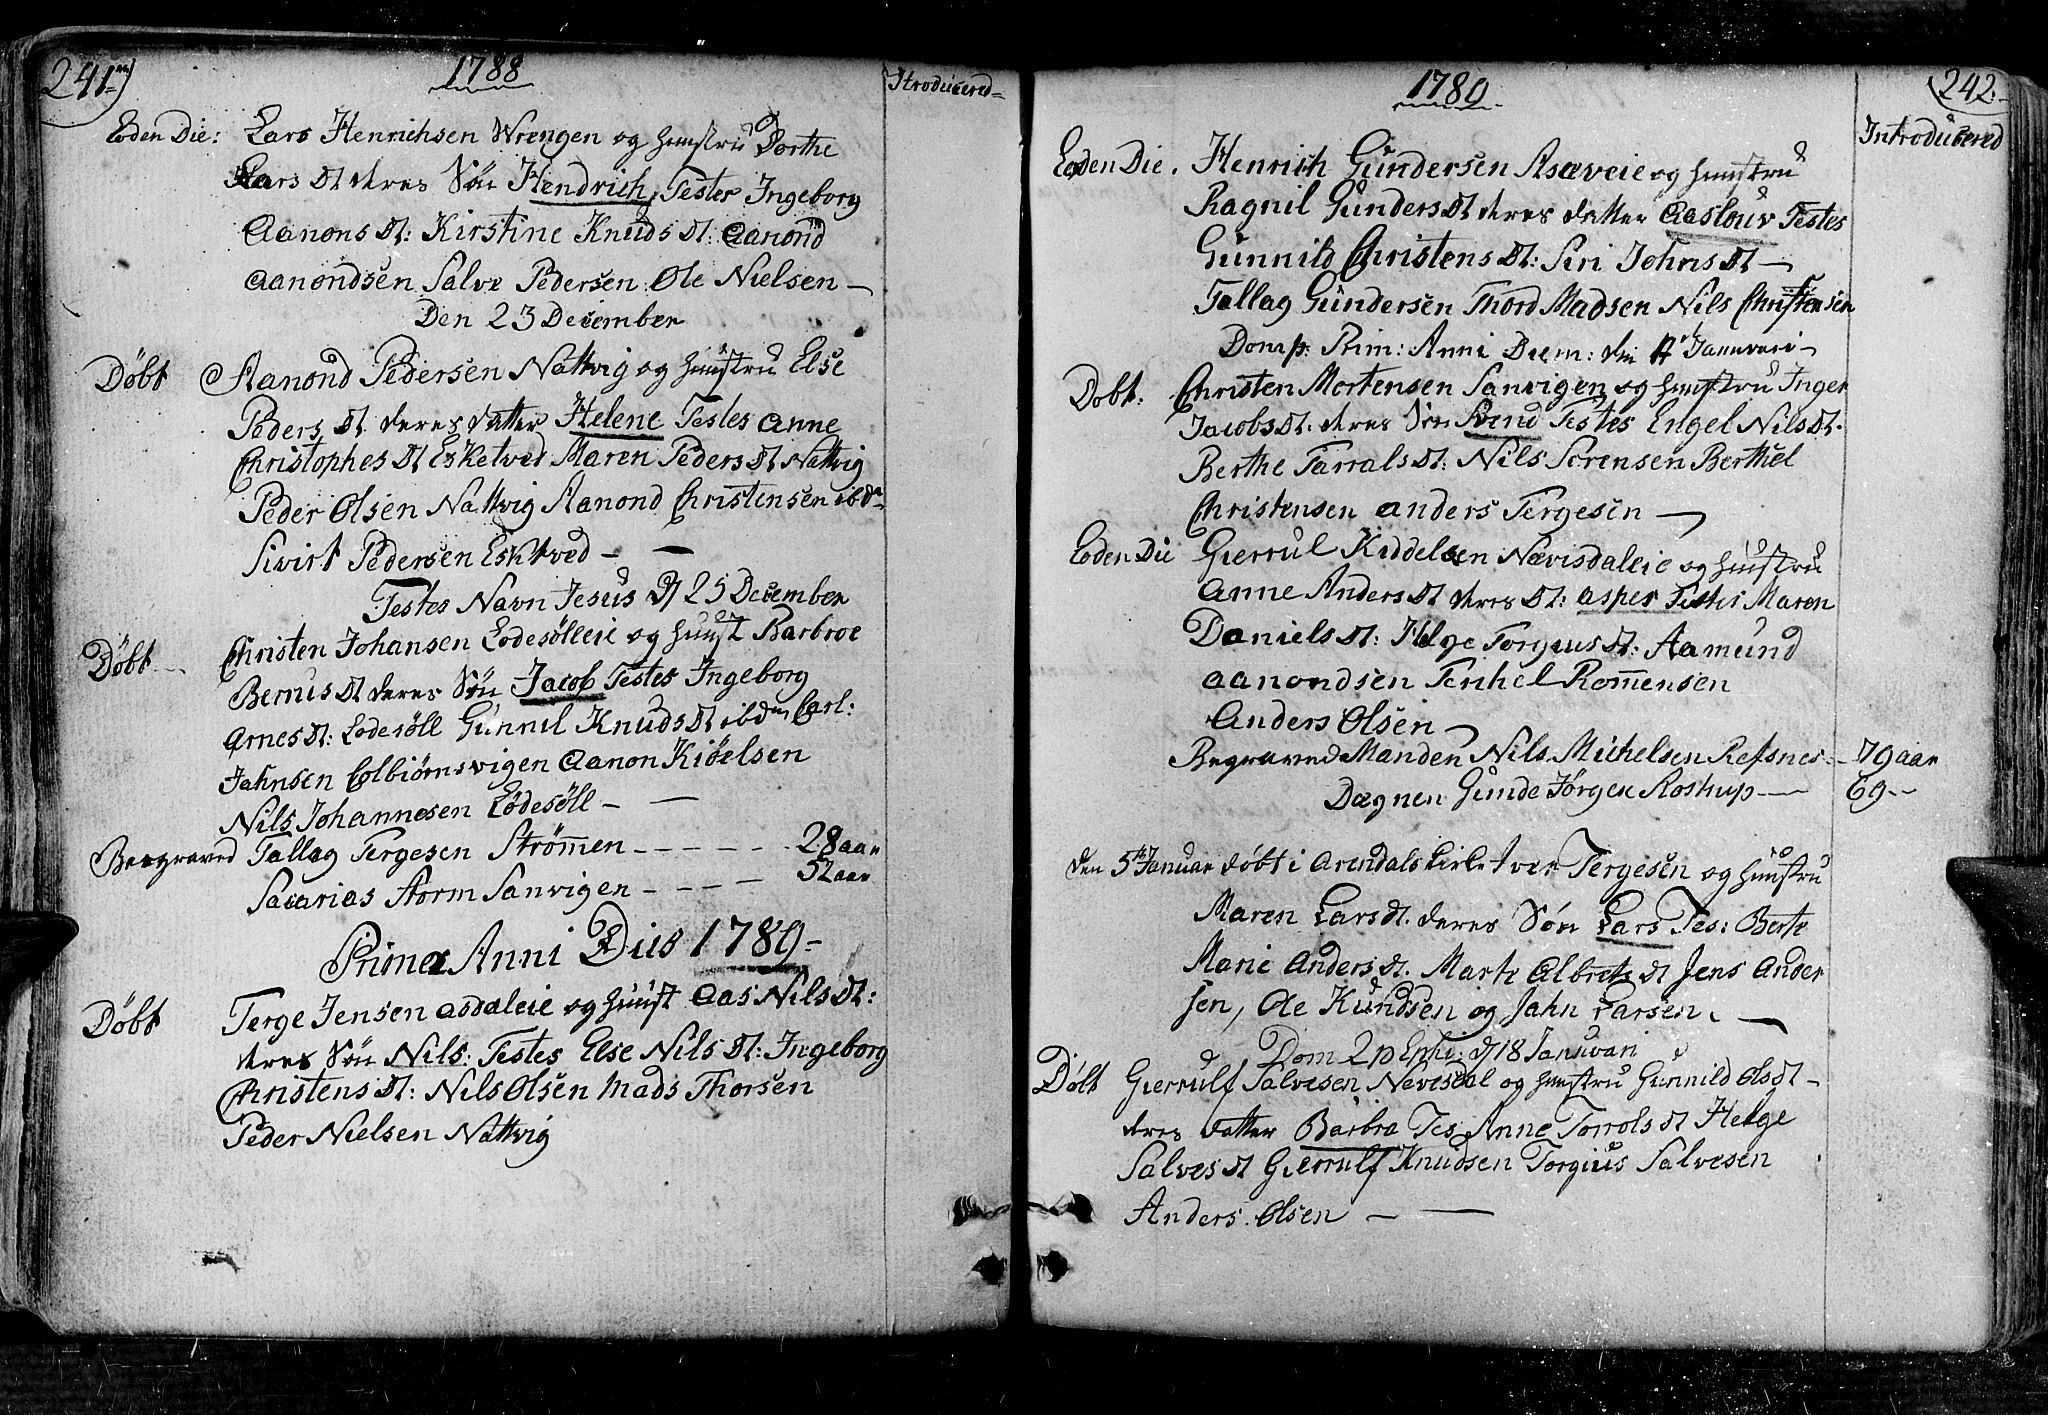 241
1788
Itroducered
Eoden Die: Lars Henrichsen Wrengen og hustru Dorthe
Lars Dt deres Søn Hendrich Testes Ingeborg
Aanons Dt: Kirstine Knuds Dt: Aanond
Aanondsen Salve Pedersen Ole Nielsen
Den 23 December
Døbt Aanond Pedersen Nattvig og hustru Else
Peders Dt deres datter Helene Testes Anne
Christophes Dt Esketved Maren Peders Dt Nattvig
Peder Olsen Nattvig Aanond Christensen ibd
Sivirt Pedersen Esktved
Testes Navn Jesus D 25 December
Døbt Christen Johansen Lodesølleie og hust Barbroe
Bernus Dt deres Søn Jacob Testes Ingeborg
Arnes Dt: Lodesøll Gunnil Knuds Dt ibdm Carl:
Jahnsen Colbiørnsvigen Aanon Kiøelsen
Nils Johannesen Lødesøll
Beegraved Tallag Tergesen Strømen 28 aar
Sacarias Storm Sanvigen 52 aar
Prima Anni Dies 1789
Døbt Terge Jensen Asdaleie og hust Aas Nils Dt:
deres Søn Nils: Testes Else Nils Dt: Ingeborg
Christens Dt: Nils Olsen Mads Thorsen
Peder Nielsen Nattvig
1789
242
Introducered
Eoden Die. Henrich Gundersen Asæveie og hustru
Ragnil Gunders Dt deres datter Aaslouv Testes
Gunnild Christens Dt: Siri Johns Dt
Tallag Gundersen Thord Madsen Nils Christensen
Dom p: Prim: Anni Diem: den 4 Januvari
Dobt: Christen Mortensen Sanvigen og hustru Inger
Jacobs Dt. deres Søn Svend Testes Engel Nils Dt.
Berthe Tarrals Dt: Nils Sørensen Berthel
Christensen Anders Tergesen
Eoden Die Gierrul Kiddelsen Nævisdaleie og hustru
Anne Anders Dt deres Dt: Asper Testes Maren
Daniels Dt: Helge Torgius Dt: Aamund
Aanondsen Terchel Romensen
Anders Olsen
Begraved Manden Nils Michelsen Refsnes 79 aar
Dægnen Gunde Jørgen Rostrup 69
den 5te Januar døbt i Arendals kirke Iver Tergesen og hustru
Maren Lars dt. deres Søn Lars Tes: Berte
Marie Anders dt. Marte Albrets dt Jens Ander
sen, Ole Kundsen og Jahn Larsen.
Dom 2 p Ephi: d 18 Januvari
Døbt Gierrulf Salvesen Nevesdal og hustru Gunnild Ols dt
deres datter Barbra Tes Anne Torrols dt Helge
Salves dt Gierrulf Knudsen Torgius Salvesen
Anders Olsen